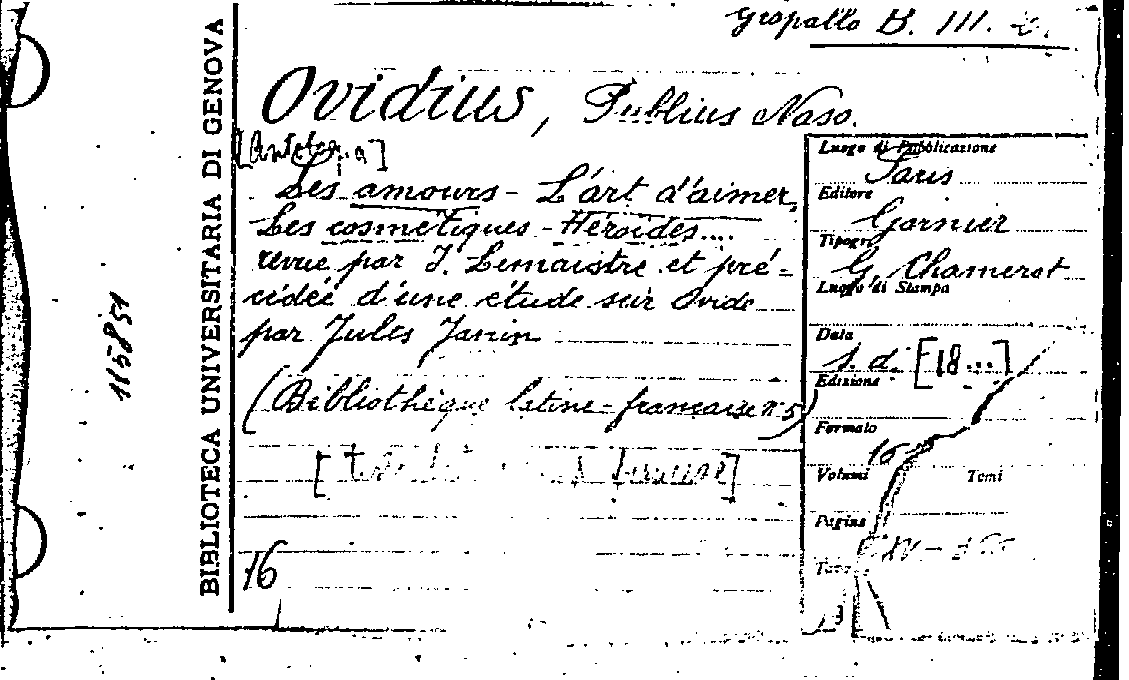 Gropallo B. III.
Ovidius, Publius Naso.
[Antologia]
Les amours - L'art d'aimer,
Les cosmétiques - Héroides....
revue par J. Lemaistre et pré-
cédée d'une étude sur Ovide
par Jules Janin
(Bibliothèque latine-française n. 5)
16
BIBLIOTECA UNIVERSITARIA DI GENOVA
115851
Luogo di Pubblicazione
Paris
Editore
Garnier
Tipogr
G. Chamerot
Luogo di Stampa
Data
s. d. [18...]
Edizione
Formato
16
Volumi Tomi
Pagine
XV -